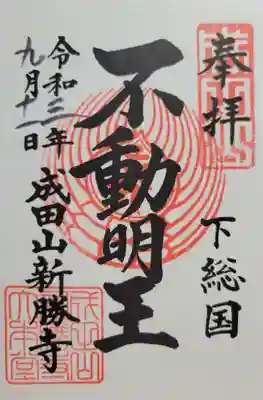 奉拝
下総国
不動明王
成田山新勝寺
令和三年
九月十一日